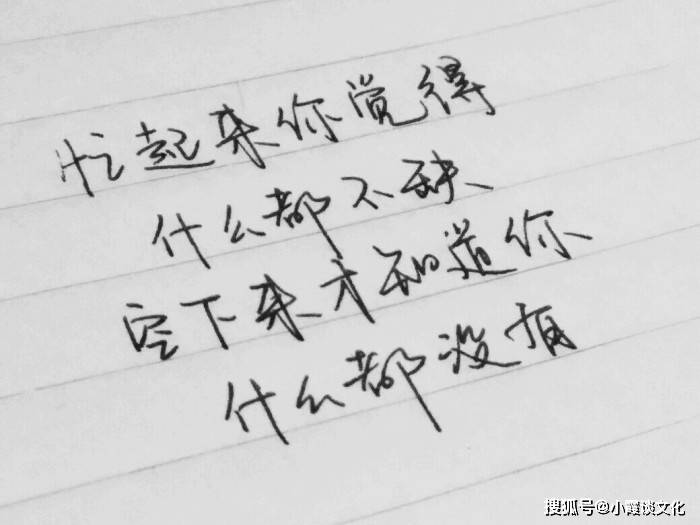 忙起来你觉得
什么都不缺
空下来才知道你
什么都没有
搜狐号@小霞谈文化